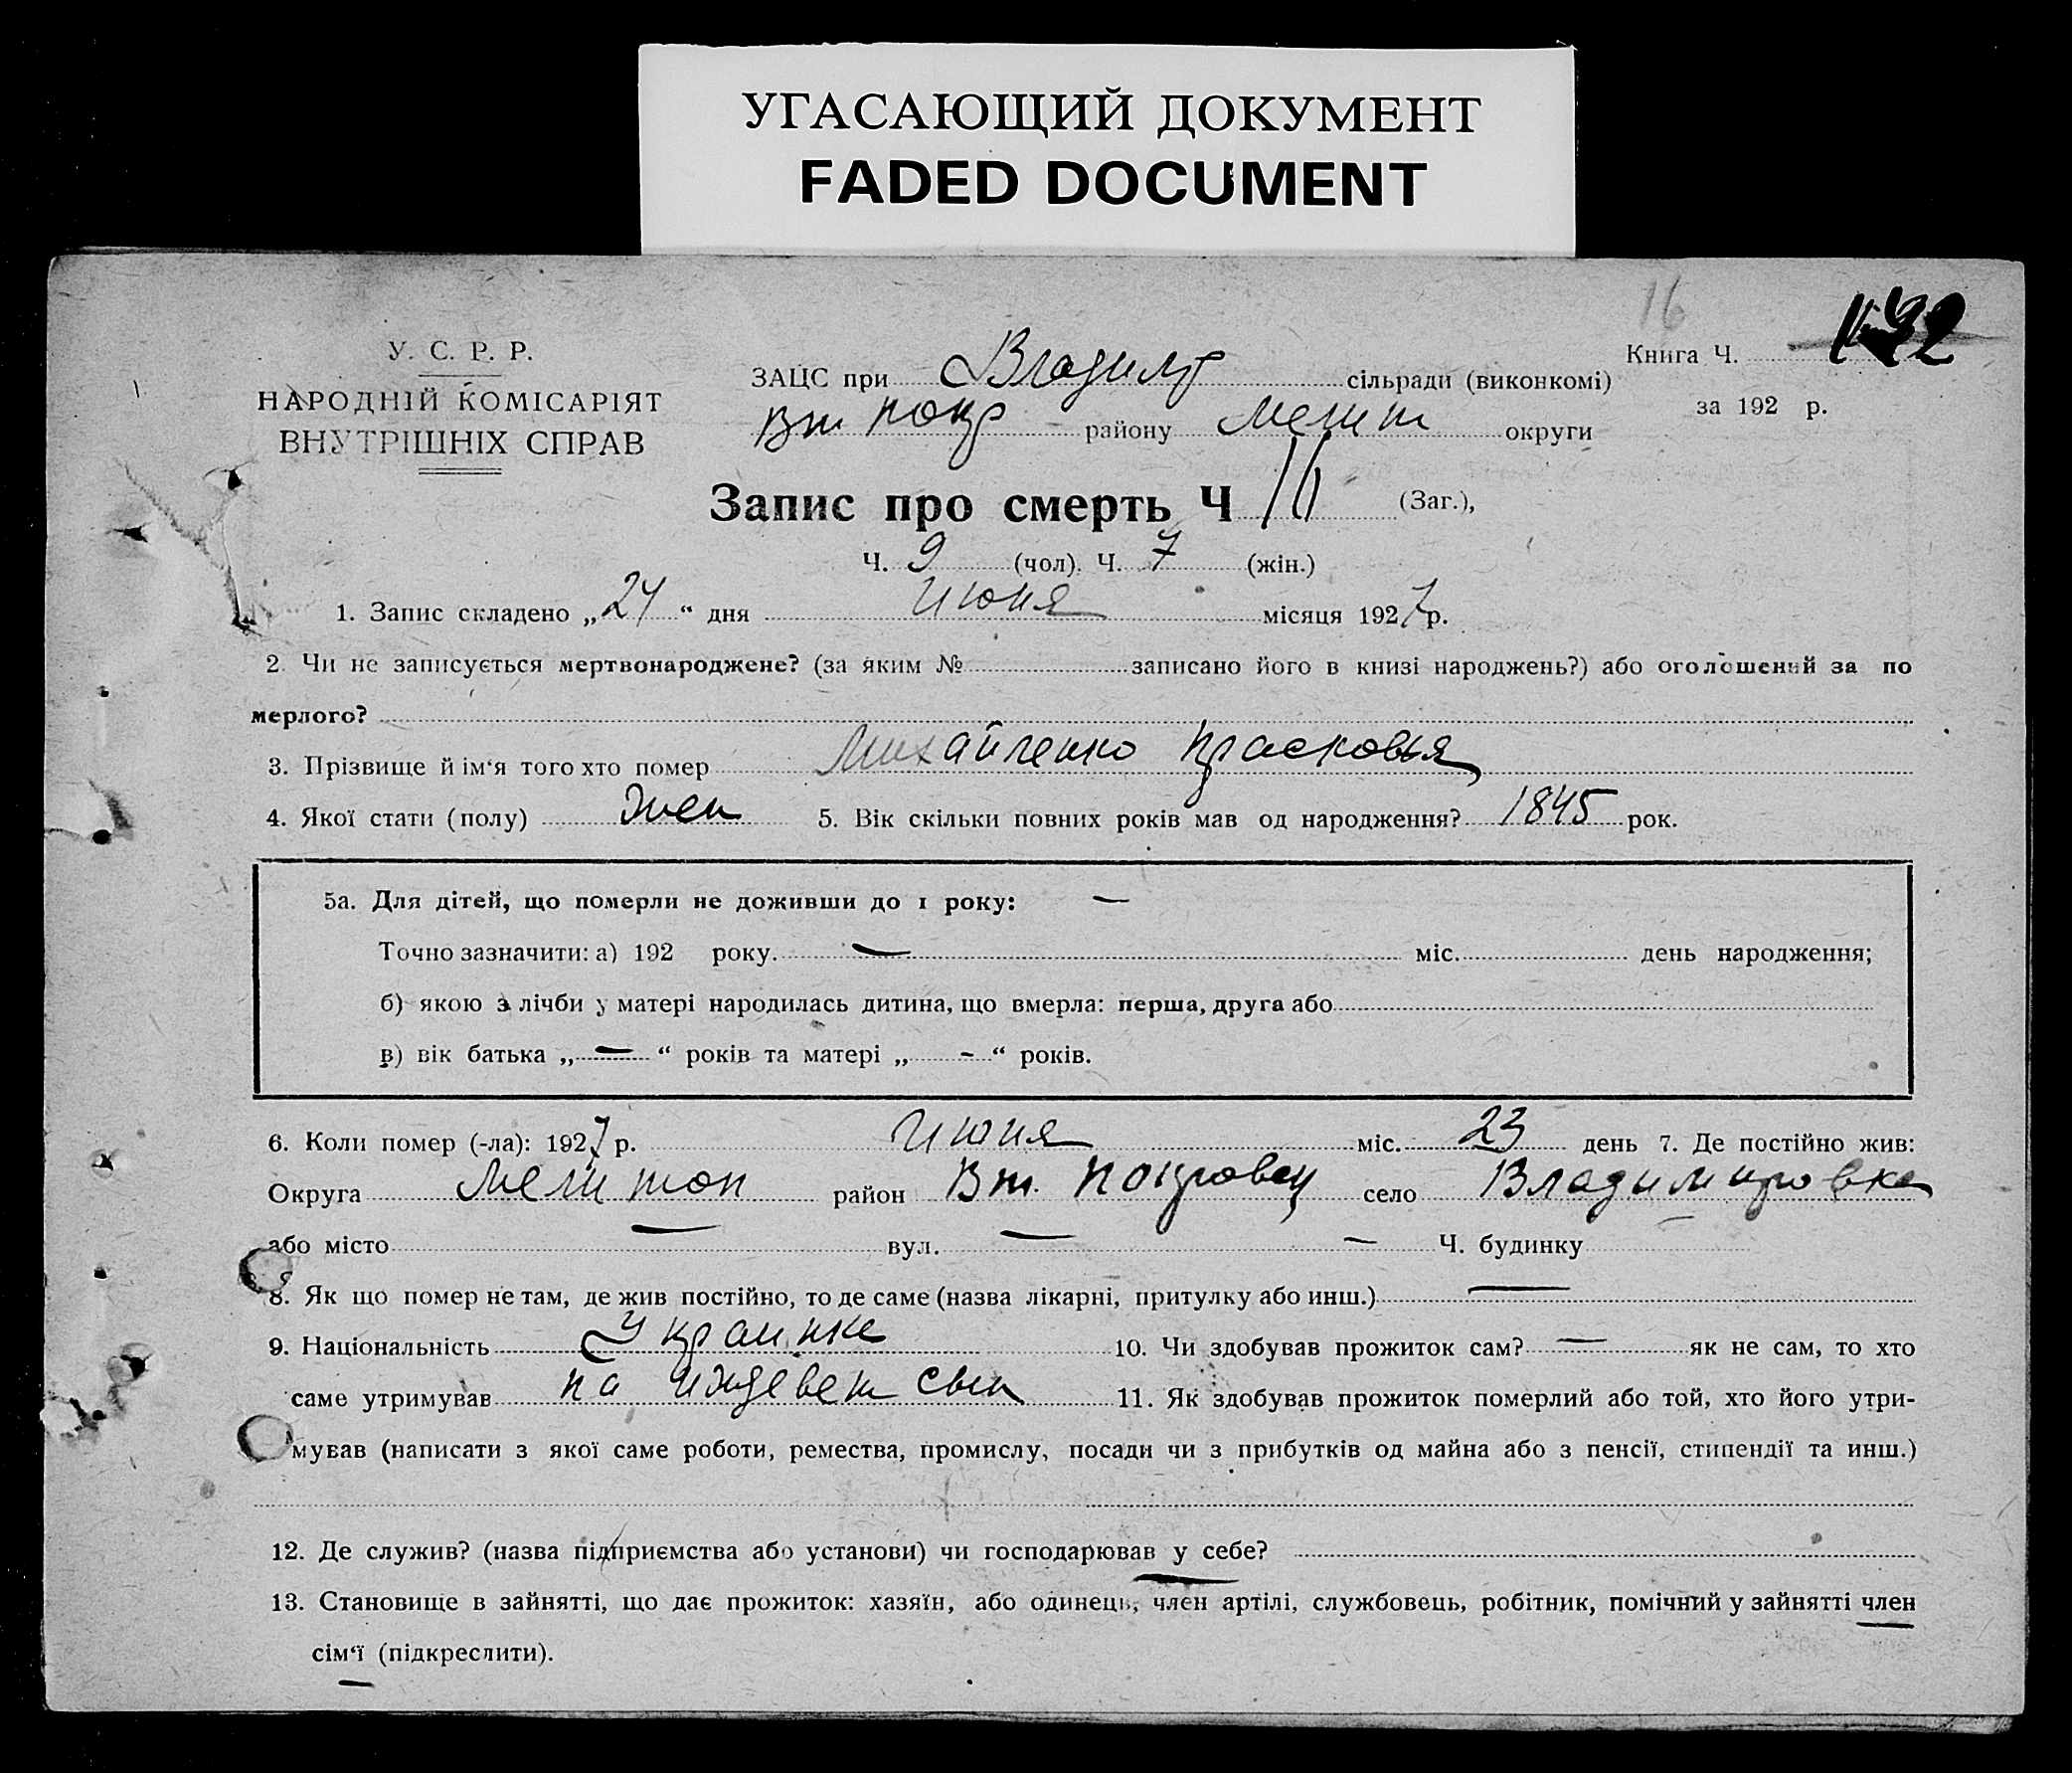 УГАСАЮЩИЙ ДОКУМЕНТ
FADED DOCUMENT
16
У. С. Р. Р.
НАРОДНІЙ КОМІСАРІЯТ
ВНУТРІШНІХ СПРАВ
ЗАЦС при Владимір сільради (виконкомі)
Вт Покр району Мелит округи
Книга Ч.
за 192 р.
Запис про смерть Ч 16 (Заг.),
Ч. 9 (чол). Ч. 7 (жін.)
1. Запис складено „24“ дня Июня місяця 1927 р.
2. Чи не записується мертвонароджене? (за яким № записано його в книзі народжень?) або оголошений за по
мерлого?
3. Прізвище й ім‘я того хто помер Михайленко Прасковья
4. Якої стати (полу) Жен 5. Вік скільки повних років мав од народження? 1845 рок.
5а. Для дітей, що померли не доживши до 1 року: —
Точно зазначити: а) 192 року. — міс. день народження;
б) якою з лічби у матері народилась дитина, що вмерла: перша, друга або
в) вік батька „—“ років та матері „-“ років.
6. Коли помер (-ла): 1927 р. Июня міс. 23 день 7. Де постійно жив:
Округа Мелитоп район Вт. Покровец село Владимировка
або місто — вул. — — Ч. будинку
8. Як що помер не там, де жив постійно, то де саме (назва лікарні, притулку або инш.) —
9. Національність Украинка 10. Чи здобував прожиток сам? — як не сам, то хто
саме утримував на иждевен сын 11. Як здобував прожиток померлий або той, хто його утри-
мував (написати з якої саме роботи, ремества, промислу, посади чи з прибутків од майна або з пенсії, стипендії та инш.)
12. Де служив? (назва підприємства або установи) чи господарював у себе?
13. Становище в зайнятті, що дає прожиток: хазяїн, або одинець, член артілі, службовець, робітник, помічний у зайнятті член
сім‘ї (підкреслити).